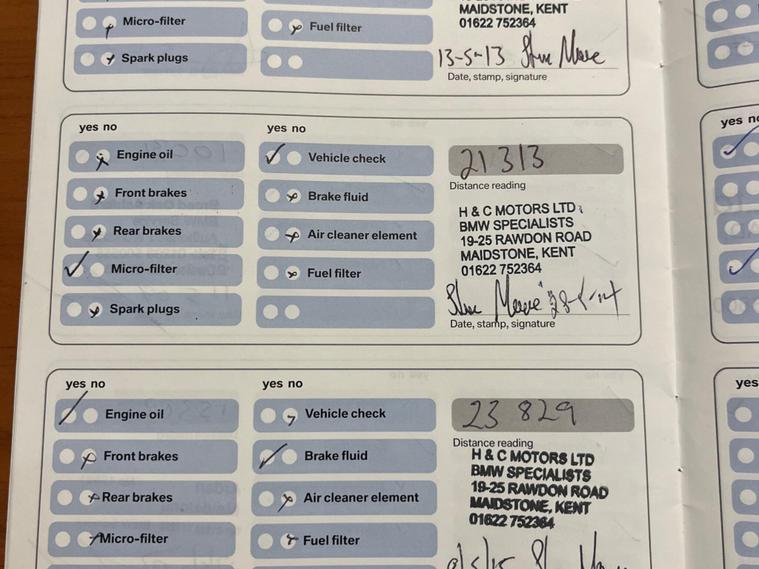 Micro-filter
Spark plugs
Fuel filter
MAIDSTONE, KENT
01622 752364
13-5-13
Date, stamp, signature
yes no
Engine oil
Front brakes
Rear brakes
Micro-filter
Spark plugs
yes no
Vehicle check
Brake fluid
Air cleaner element
Fuel filter
21313
Distance reading
H & C MOTORS LTD
BMW SPECIALISTS
19-25 RAWDON ROAD
MAIDSTONE, KENT
01622 752364
Date, stamp, signature
yes no
Engine oil
Front brakes
Rear brakes
Micro-filter
yes no
Vehicle check
Brake fluid
Air cleaner element
Fuel filter
23 829
Distance reading
H & C MOTORS LTD
BMW SPECIALISTS
19-25 RAWDON ROAD
MAIDSTONE, KENT
01622 752364
yes